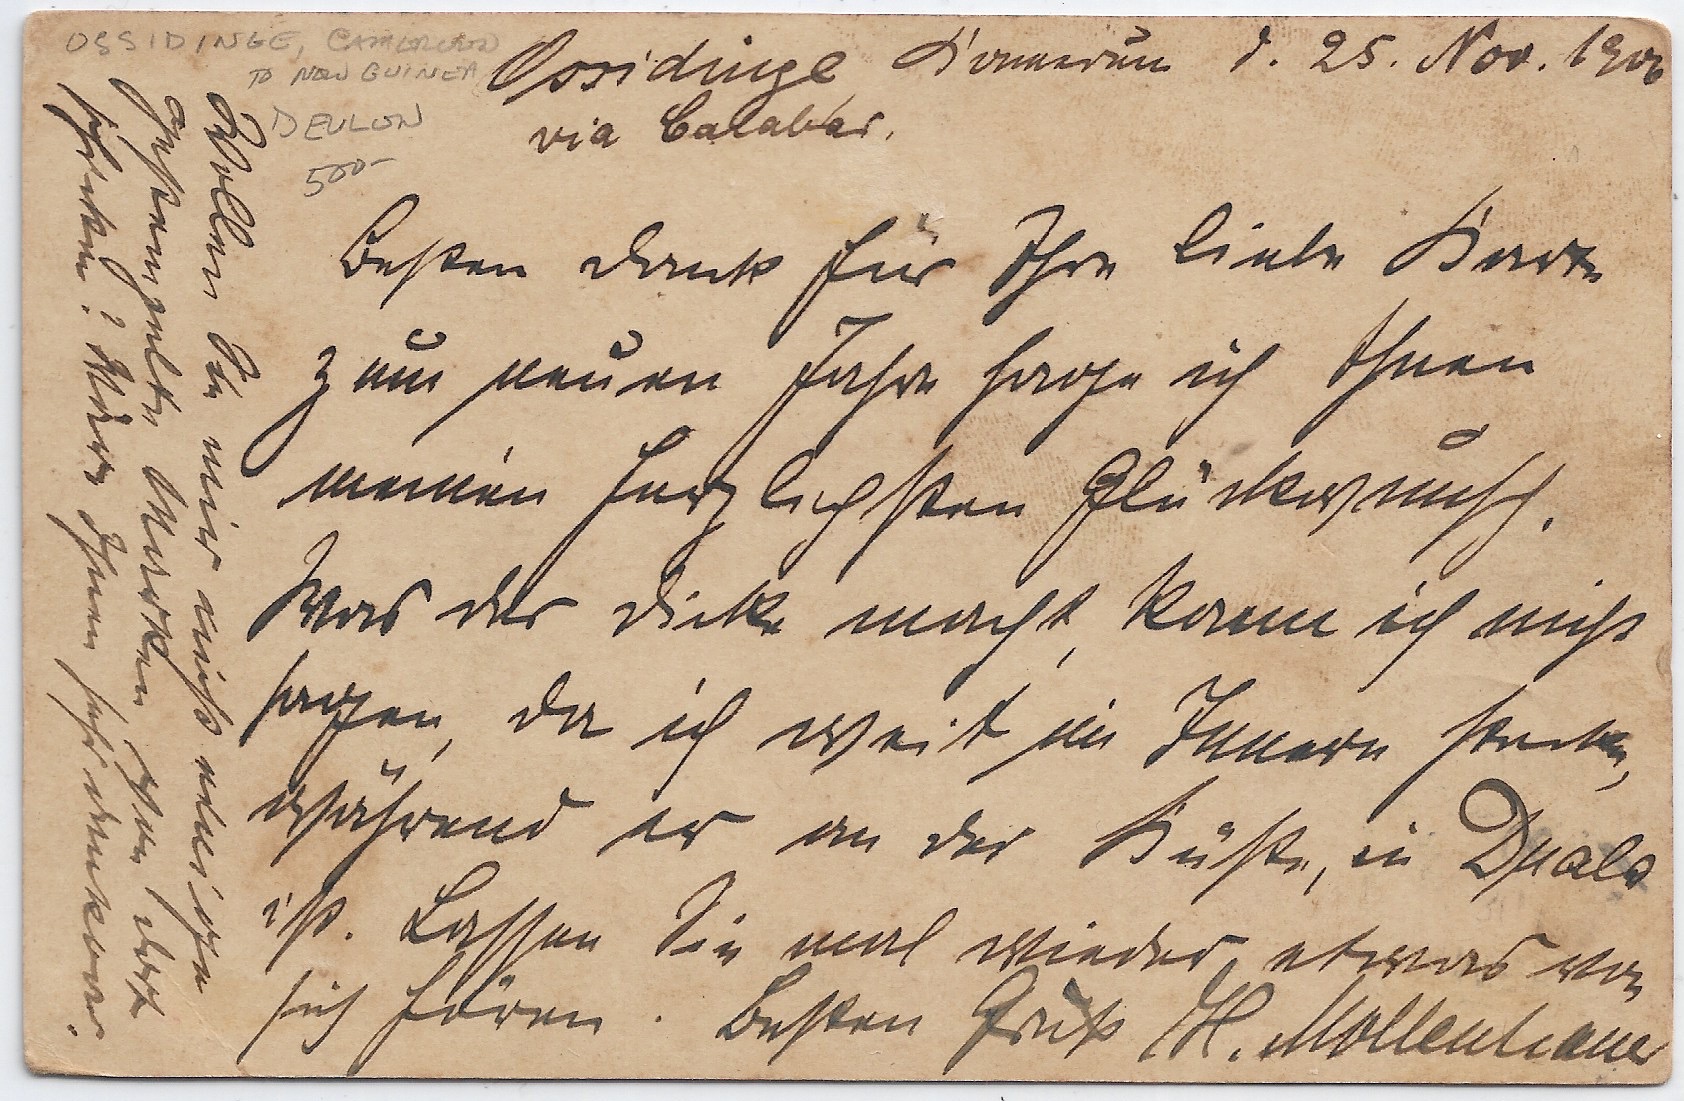 OSSIDINGE, CAMEROON
TO NEW GUINEA
DEULON
500-
Ossidinge Kamerun d. 25. Nov. 1900
via Calabar.
Besten Dank für Ihre liebe Karte
zum neuen Jahre sage ich Ihnen
meinen herzlichsten Glückwunsch.
Was der Dicke macht, kann ich nicht
sagen, da ich weit im Innern stecke,
während er an der Küste, in Duala
ist. Lassen Sie mal wieder etwas von
sich hören. Besten Gruß H. Mollenhauer
Wollen Sie mir nicht einige
gestempelte Marken von dort
schicken? Wäre Ihnen sehr dankbar.